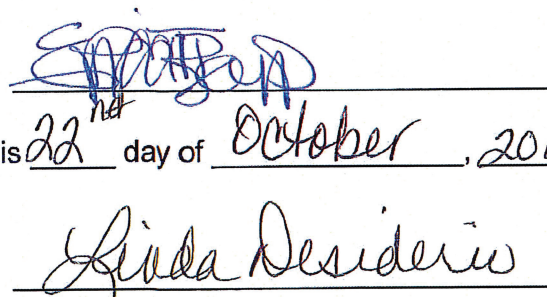 is 22nd day of October, 201
Linda Desiderio